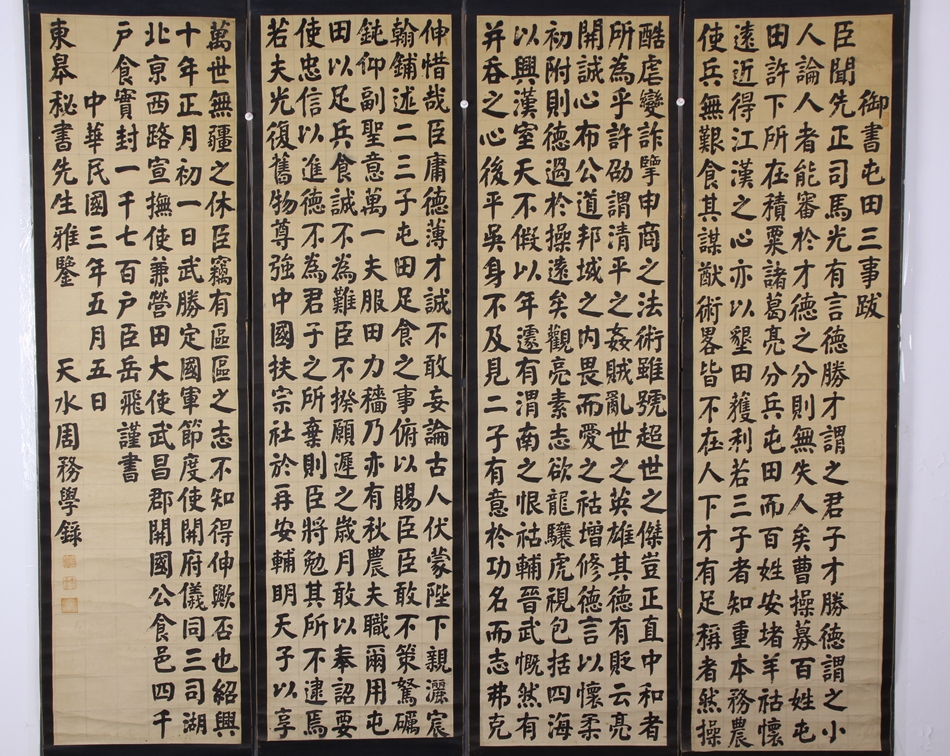 御書屯田三事跋
臣聞先正司馬光有言德勝才謂之君子才勝德謂之小
人論人者能審於才德之分則無失人矣曹操募百姓屯
田許下所在積粟諸葛亮分兵屯田而百姓安堵羊祜懷
遠近得江漢之心亦以墾田獲利若三子者知重本務農
使兵無艱食其謀猷術畧皆不在人下才有足稱者然操
酷虐變詐擥申商之法術雖號超世之傑豈正直中和者
所為乎許劭謂清平之姦賊亂世之英雄其德有貶云亮
開誠心布公道邦域之內畏而愛之祜增修德言以懷柔
初附則德過於操遠矣觀亮素志欲龍驤虎視包括四海
以興漢室天不假以年遽有渭南之恨祜輔晉武慨然有
并吞之心後平吳身不及見二子有意於功名而志弗克
伸惜哉臣庸德薄才誠不敢妄論古人伏蒙陛下親灑宸
翰鋪述二三子屯田足食之事俯以賜臣臣敢不策駑礪
鈍仰副聖意萬一夫服田力穡乃亦有秋農夫職爾用屯
田以足兵食誠不為難臣不揆願遲之歲月敢以奉詔要
使忠信以進德不為君子之所棄則臣將勉其所不逮焉
若夫光復舊物尊強中國扶宗社於再安輔明天子以享
萬世無疆之休臣竊有區區之志不知得伸歟否也紹興
十年正月初一日武勝定國軍節度使開府儀同三司湖
北京西路宣撫使兼營田大使武昌郡開國公食邑四千
戶食實封一千七百戶臣岳飛謹書
中華民國三年五月五日
東皋秘書先生雅鑒 天水周務學錄